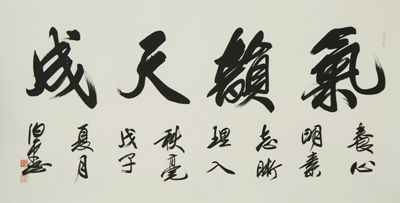 氣韻天成
養心
明素
志晰
理入
秋毫
戊子
夏月